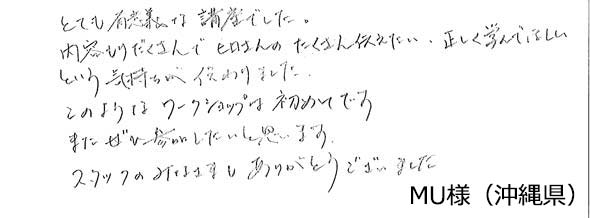 とても有意義な講座でした。
内容もりだくさんで のたくさん伝えたい、正しく学んでほしい
という気持ちが伝わりました。
このようなワークショップは初めてです
またぜひ参加したいと思います。
スタッフのみなさまもありがとうございました
MU様（沖縄県）